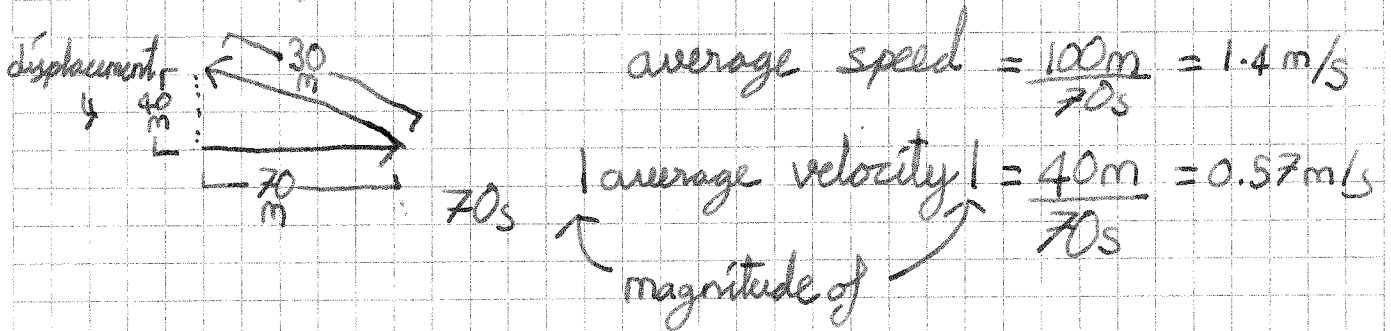 displacement
40
m
30
m
70
m
70s
average speed = 100m / 70s = 1.4 m/s
|average velocity| = 40m / 70s = 0.57m/s
magnitude of